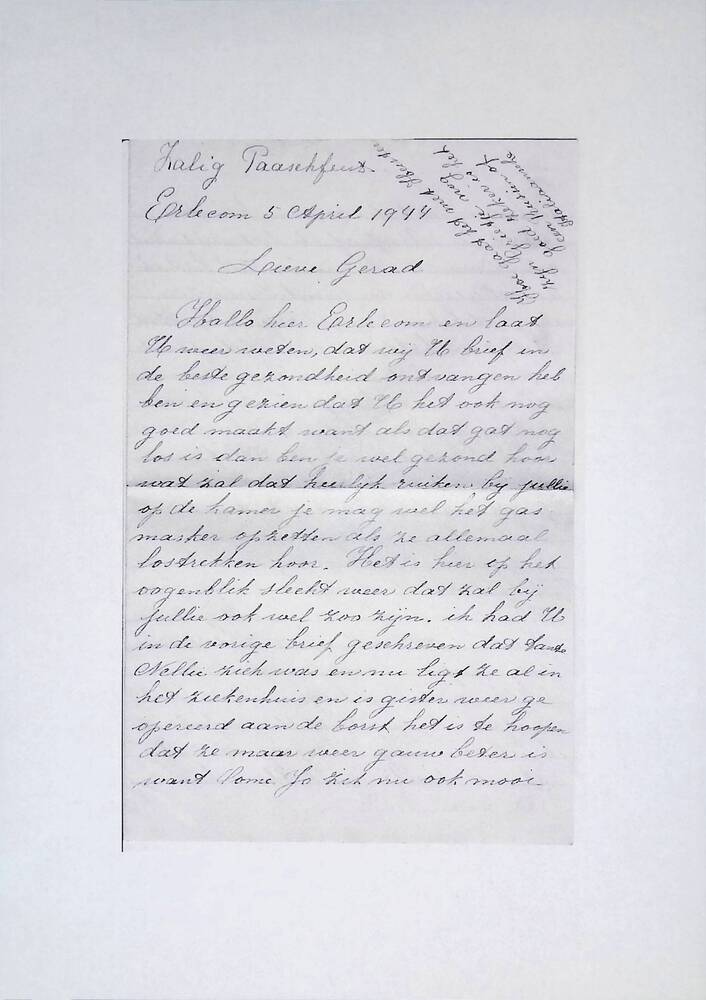 Zalig Paaschfeest.
Erlecom 5 April 1944
Lieve Gerad
Hallo hier Erlecom en laat
U weer weten, dat wij U brief in
de beste gezondheid ontvangen heb
ben en gezien dat U het ook nog
goed maakt want als dat gat nog
los is dan ben je wel gezond hoor
wat zal dat heerlijk ruiken bij jullie
op de kamer je mag wel het gas
masker opzetten als ze allemaal
lostrekken hoor. Het is hier op het
oogenblik slecht weer dat zal bij
jullie ook wel zoo zijn. ik had U
in de vorige brief geschreven dat tante
Nellie ziek was en nu ligt ze al in
het ziekenhuis en is gister weer ge
opereerd aan de borst het is te hoopen
dat ze maar weer gauw beter is
want Oome Jo zit nu ook mooi
Hoe gaat het met
zijn nog
goed zeker is het
een of